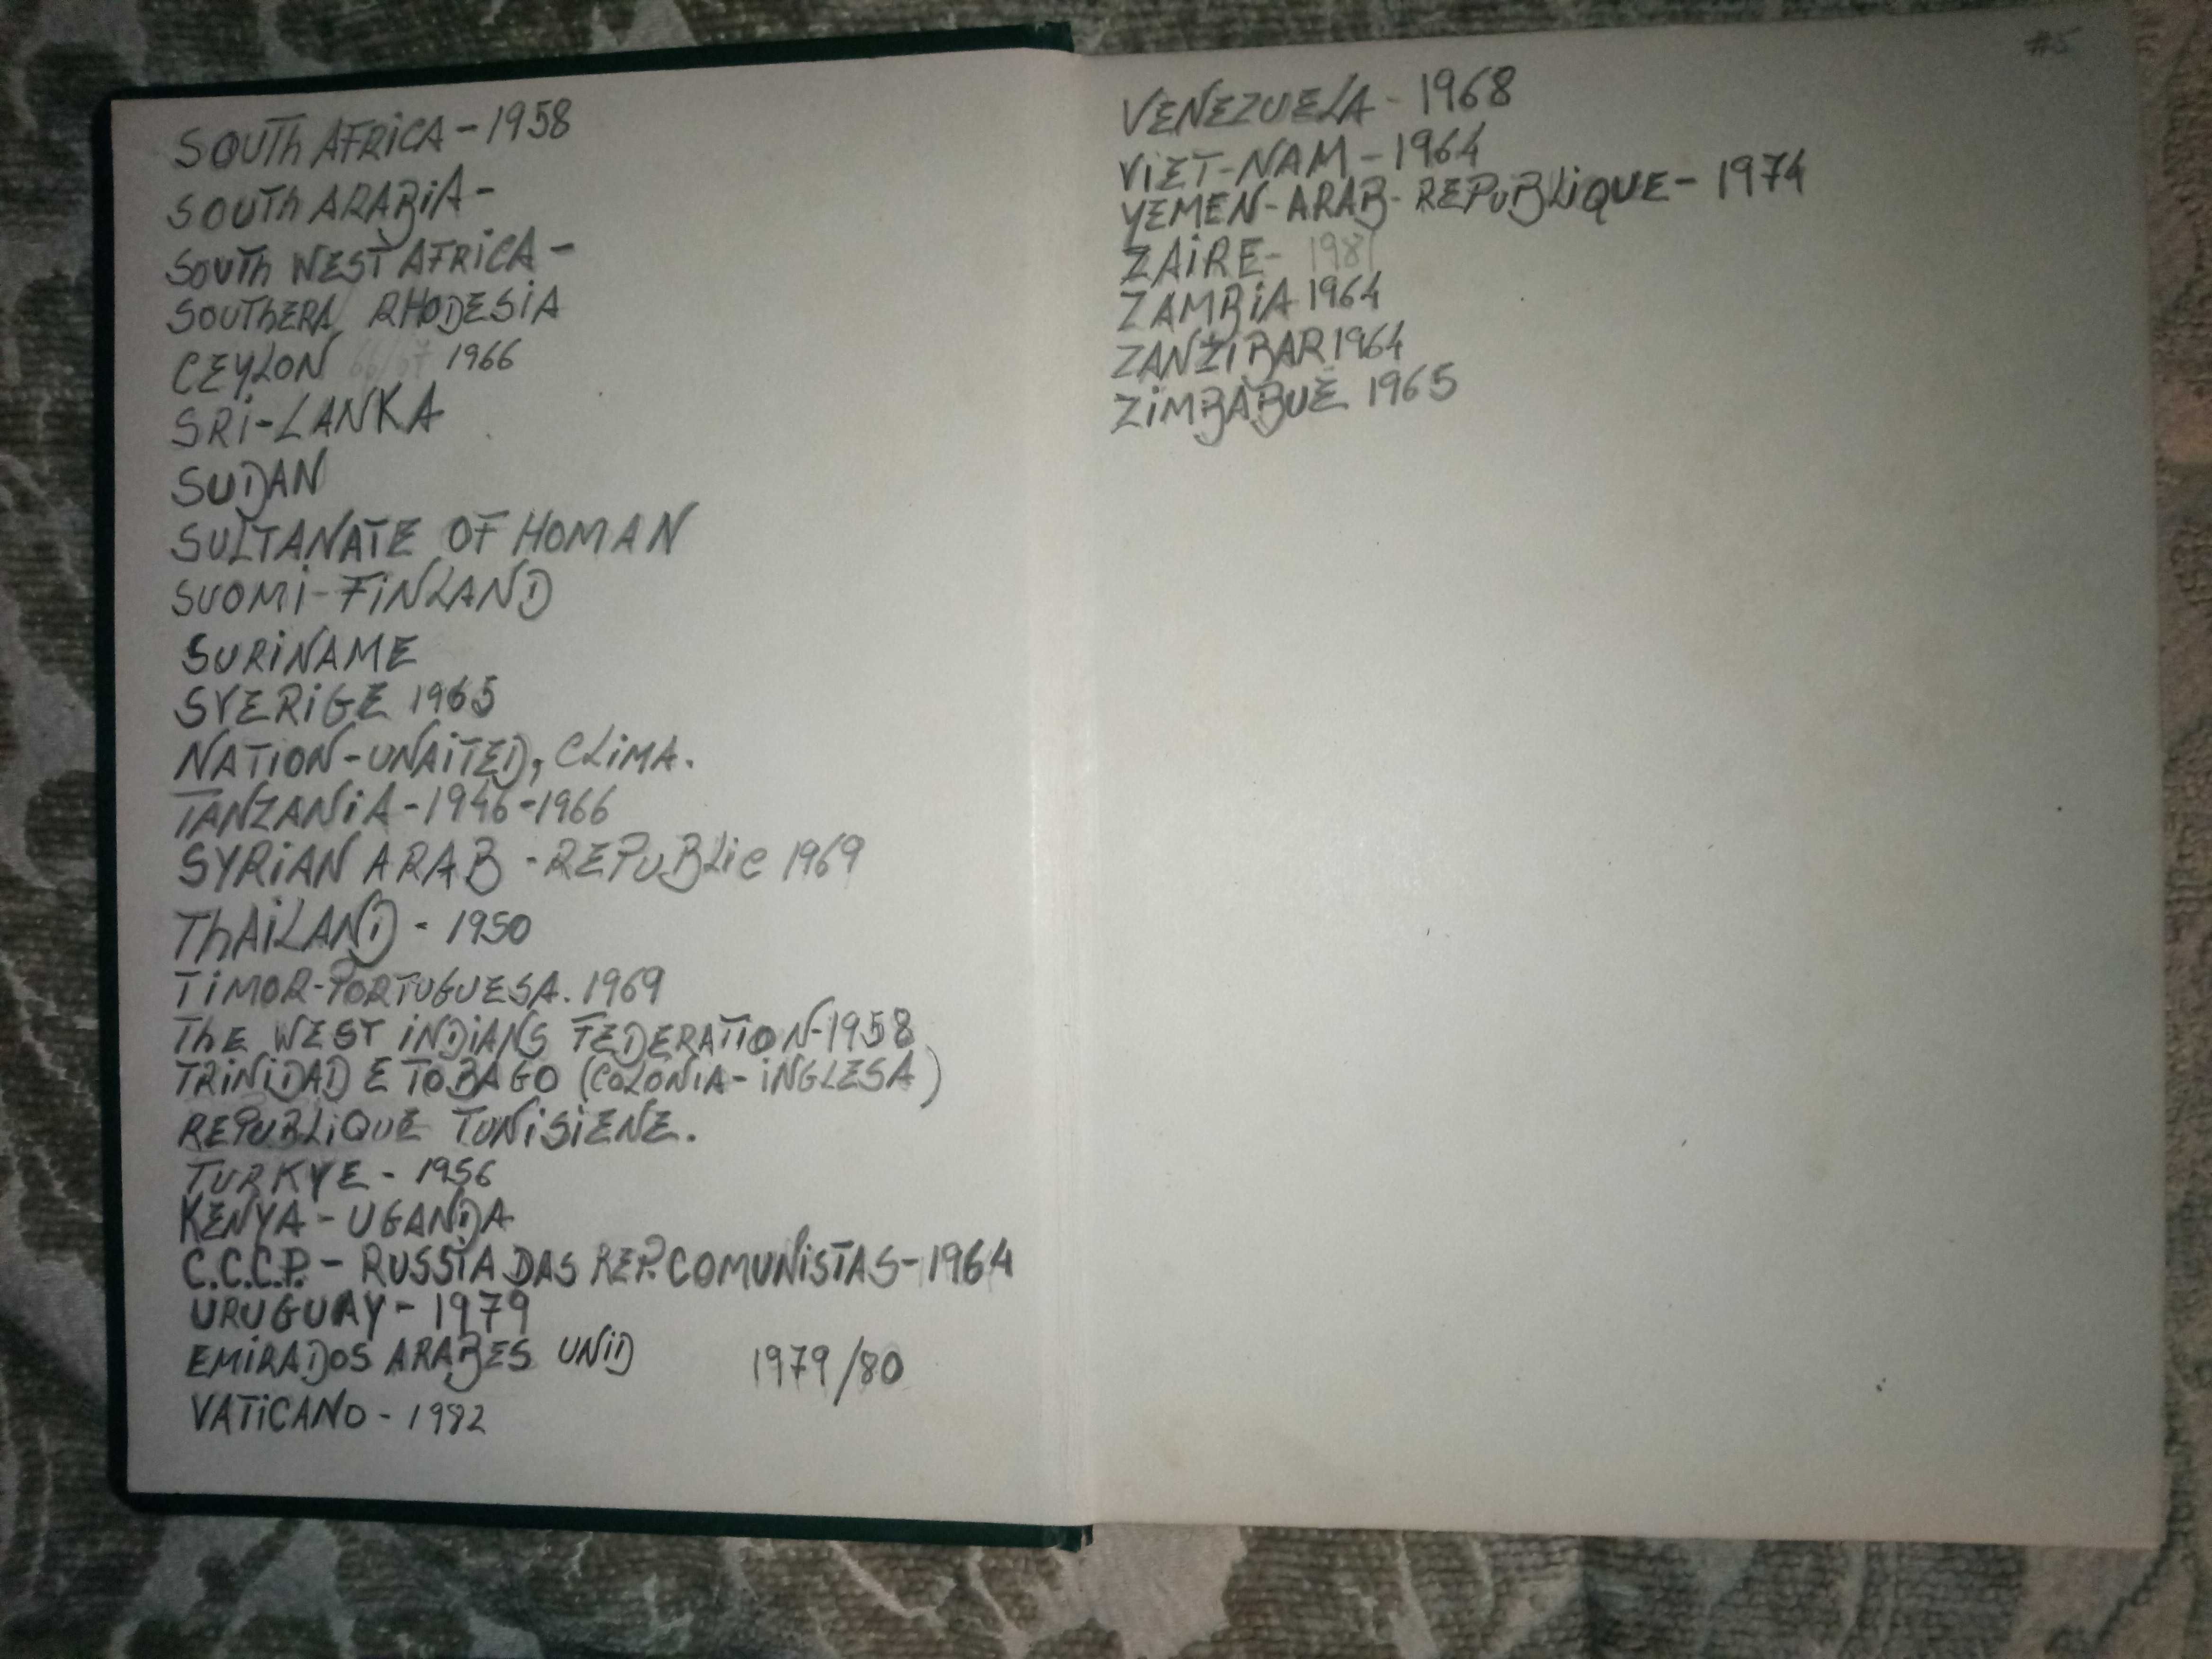 SOUTH AFRICA - 1958
SOUTH ARABIA -
SOUTH WEST AFRICA -
SOUTHERN RHODESIA
CEYLON 66/67 1966
SRI-LANKA
SUDAN
SULTANATE OF HOMAN
SUOMI - FINLAND
SURINAME
SVERIGE 1965
NATION-UNAITED, CLIMA.
TANZANIA - 1946-1966
SYRIAN ARAB - REPUBLIC 1969
THAILAND - 1950
TIMOR-PORTUGUESA. 1969
THE WEST INDIANS FEDERATION-1958
TRINIDAD E TOBAGO (COLONIA-INGLESA)
REPUBLIQUE TUNISIENE.
TURKYE - 1956
KENYA - UGANDA
C.C.C.P. - RUSSIA DAS REP. COMUNISTAS - 1964
URUGUAY - 1979
EMIRADOS ARABES UNID 1979/80
VATICANO - 1982
#5
VENEZUELA - 1968
VIET-NAM - 1964
YEMEN - ARAB - REPUBLIQUE - 1974
ZAIRE - 1981
ZAMBIA 1964
ZANZIBAR 1964
ZIMBABUE 1965